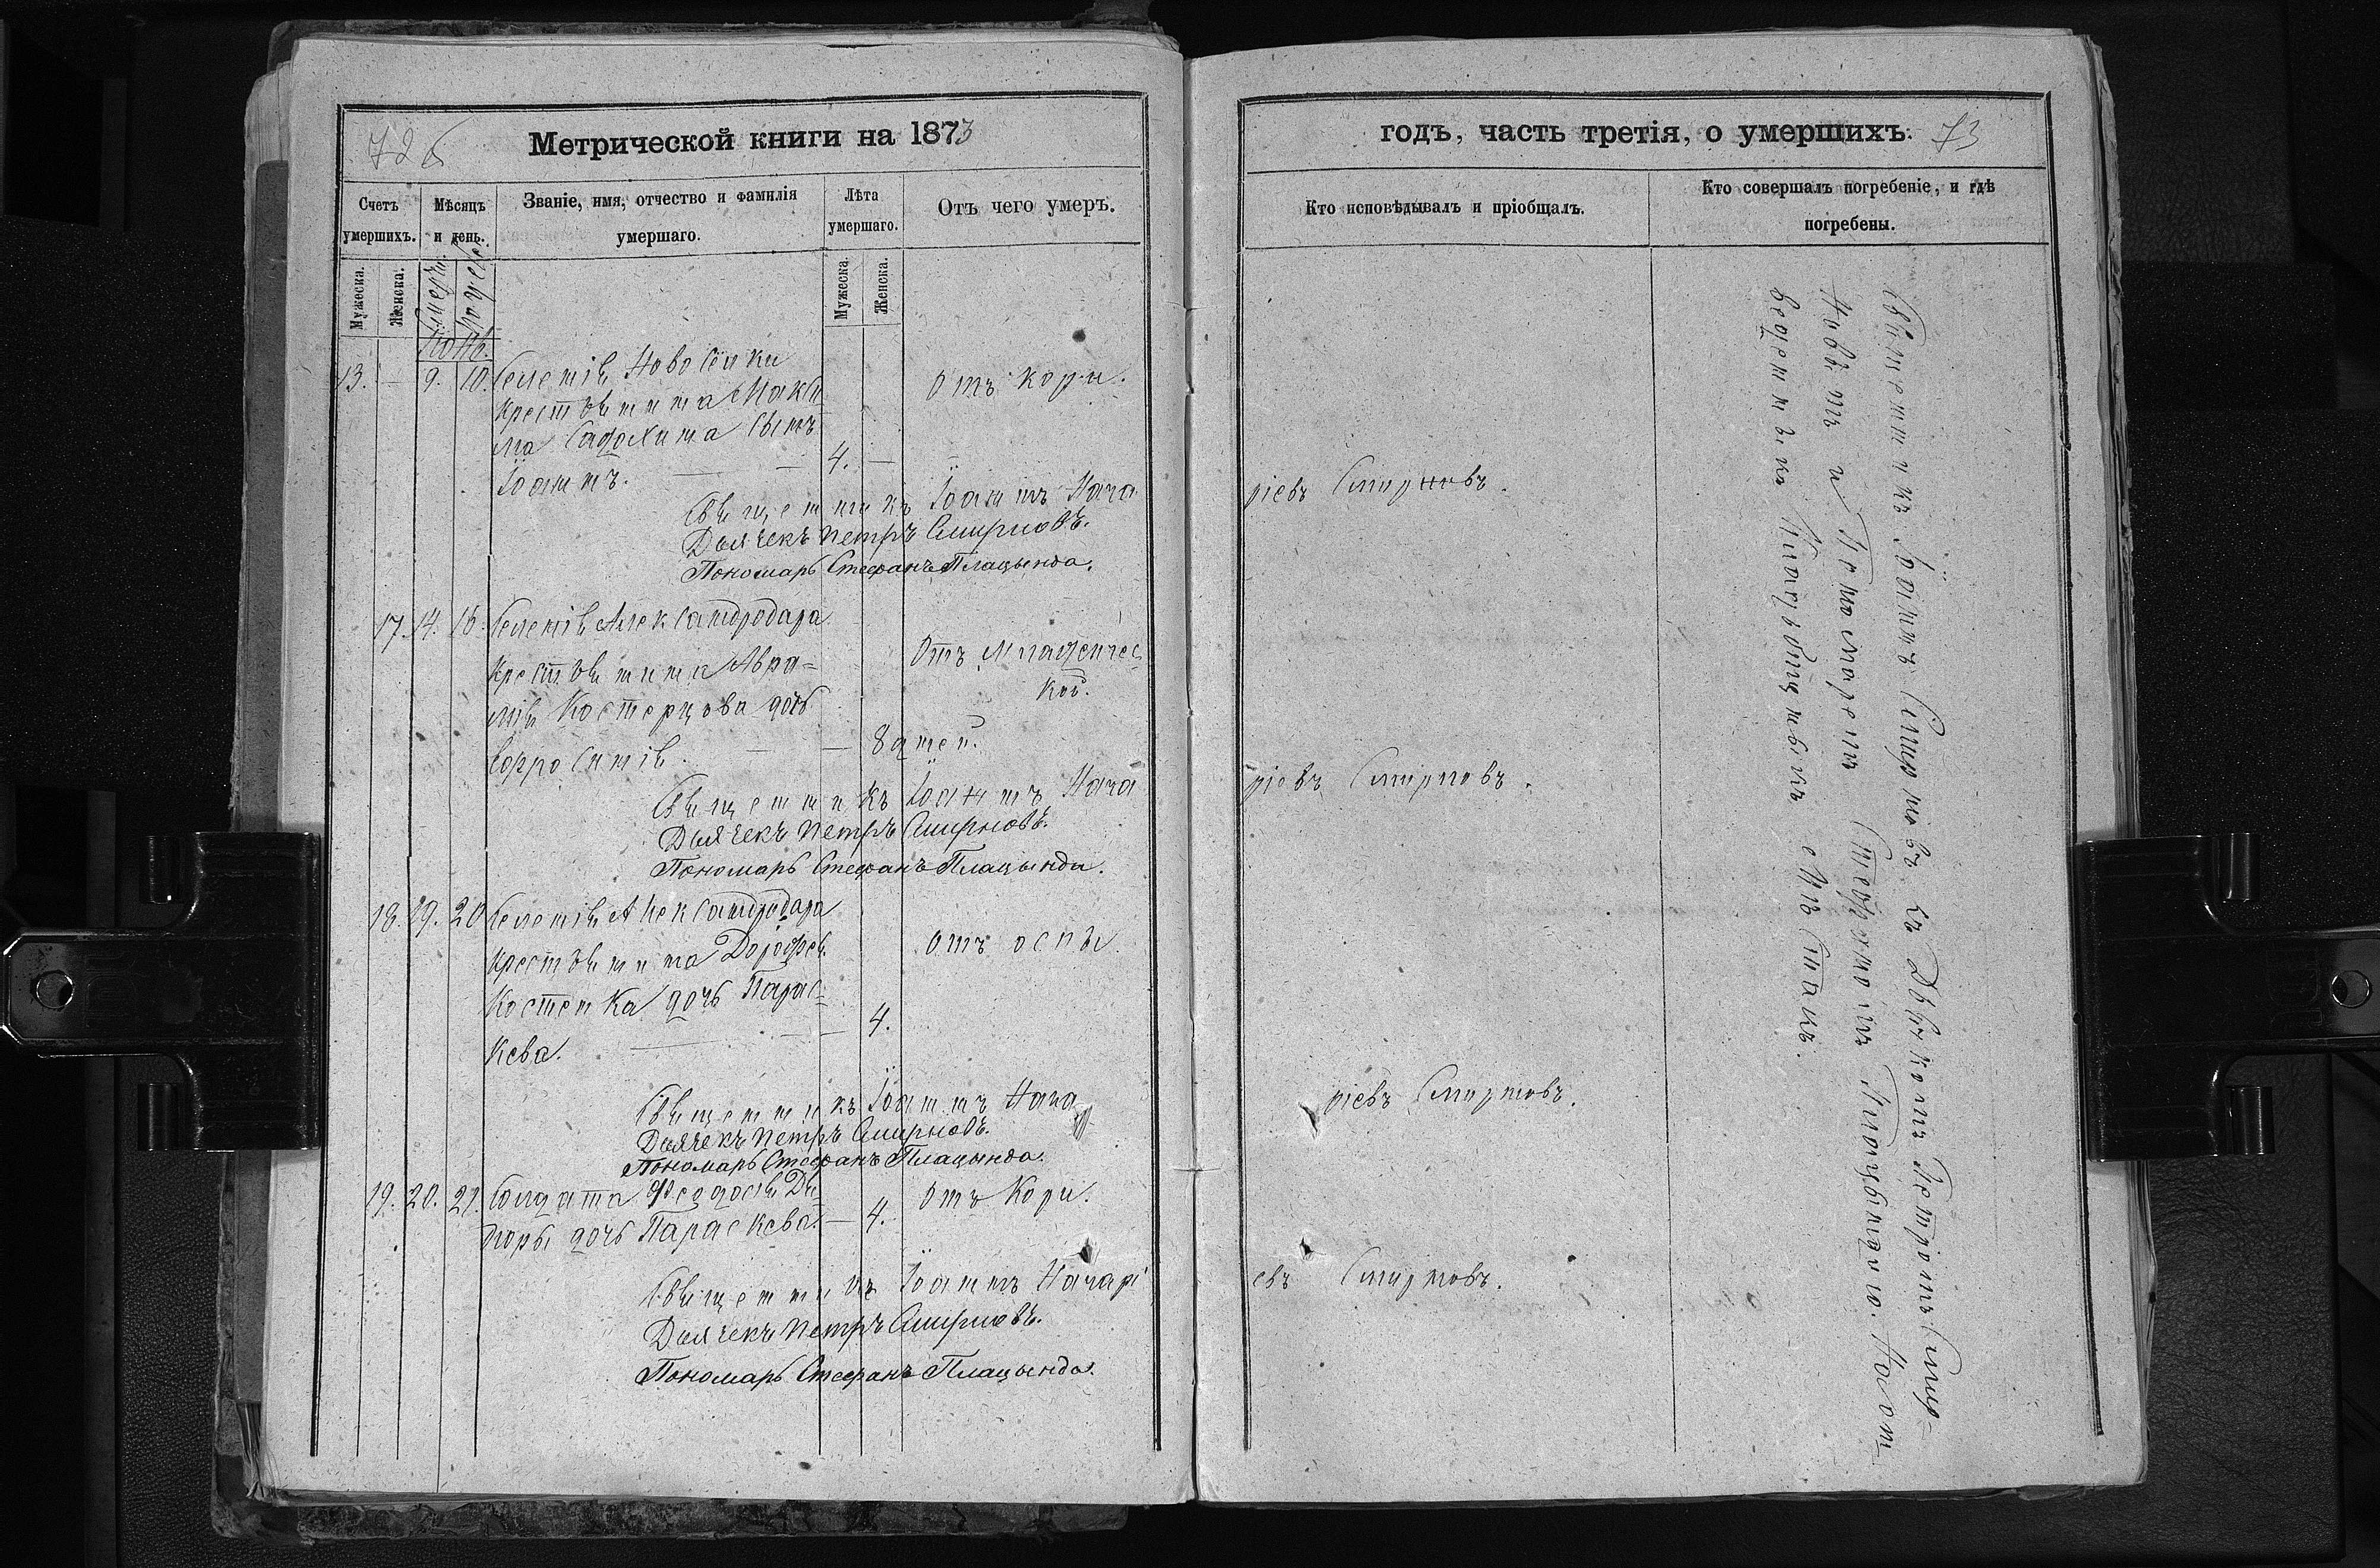 72 б
Метрической книги на 1873
Счетъ умершихъ.
Мѣсяцъ и день.
Званіе, имя, отчество и фамилія умершаго.
Лѣта умершаго.
Отъ чего умеръ.
Мужеска.
Женска.
Мужеска.
Женска.
13. — 9. 10. Селенія Ново Сёлки
Отъ кори.
крестьянина Макси
ма Садохина сынъ
Іоаннъ. — — 4. —
Священникъ Іоаннъ Нача
Дьячекъ Петръ Смирновъ.
Пономарь Стефанъ Плацында.
17. 14. 16. Селенія Александродара
крестьянина Авра=
Отъ младенчес
кой.
мія Костерцова дочь
Ефросинія. — — 8 дней.
Священникъ Іоаннъ Нача
Дьячекъ Петръ Смирновъ.
Пономарь Стефанъ Плацында.
18. 19. 20 Селенія Александродара
крестьянина Дорофея
Отъ оспы
Костенка дочь Парас=
кева. — — 4.
Священникъ Іоаннъ Нача
Дьячекъ Петръ Смирновъ.
Пономарь Стефанъ Плацында.
19. 20. 21. Солдата Феодосія
дочь Параскева. — 4. Отъ Кори.
Священникъ Іоаннъ Начарі
Дьячекъ Петръ Смирновъ.
Пономарь Стефанъ Плацында.
годъ, часть третія, о умершихъ. 73
Кто исповѣдывалъ и пріобщалъ.
Кто совершалъ погребеніе, и гдѣ погребены.
ріевъ Смирновъ.
ріевъ Смирновъ.
ріевъ Смирновъ.
евъ Смирновъ.
Священникъ Іоаннъ Смирновъ съ Дьячкомъ Петромъ Смир=
новымъ и Пономаремъ Стефаномъ Плацындою. На от
веденныхъ кладбищныхъ мѣстахъ.